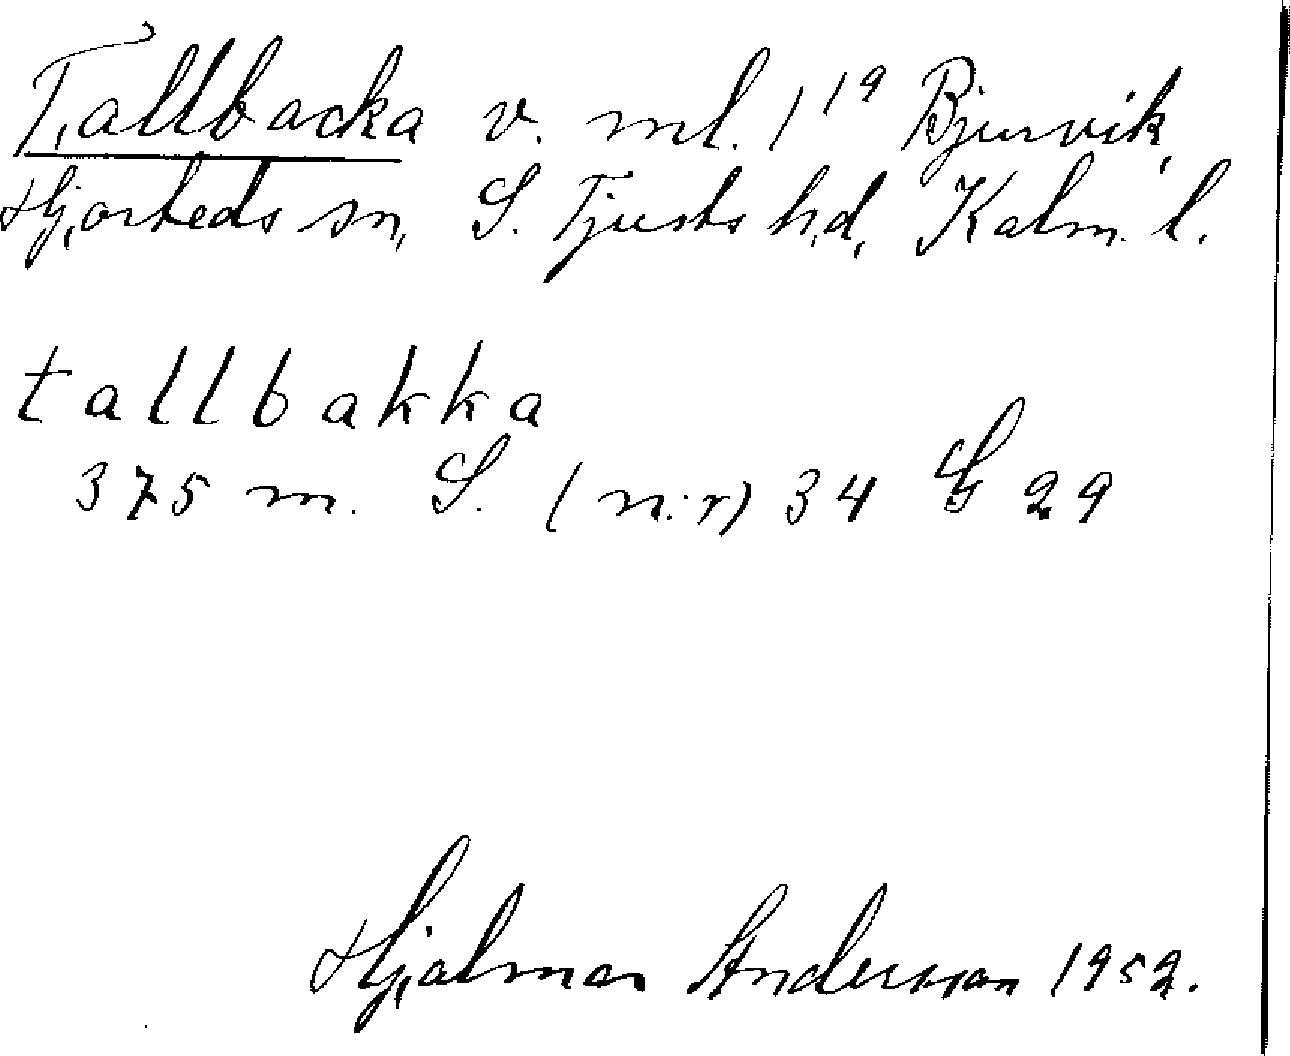 Tallbacka v. ml. 1¹⁹ Bjurvik,
Hjorteds sn, S. Tjusts hd, Kalm. l.
tallbakka
375 m. S. (n:r) 34 G 29
Hjalmar Andersson 1952.